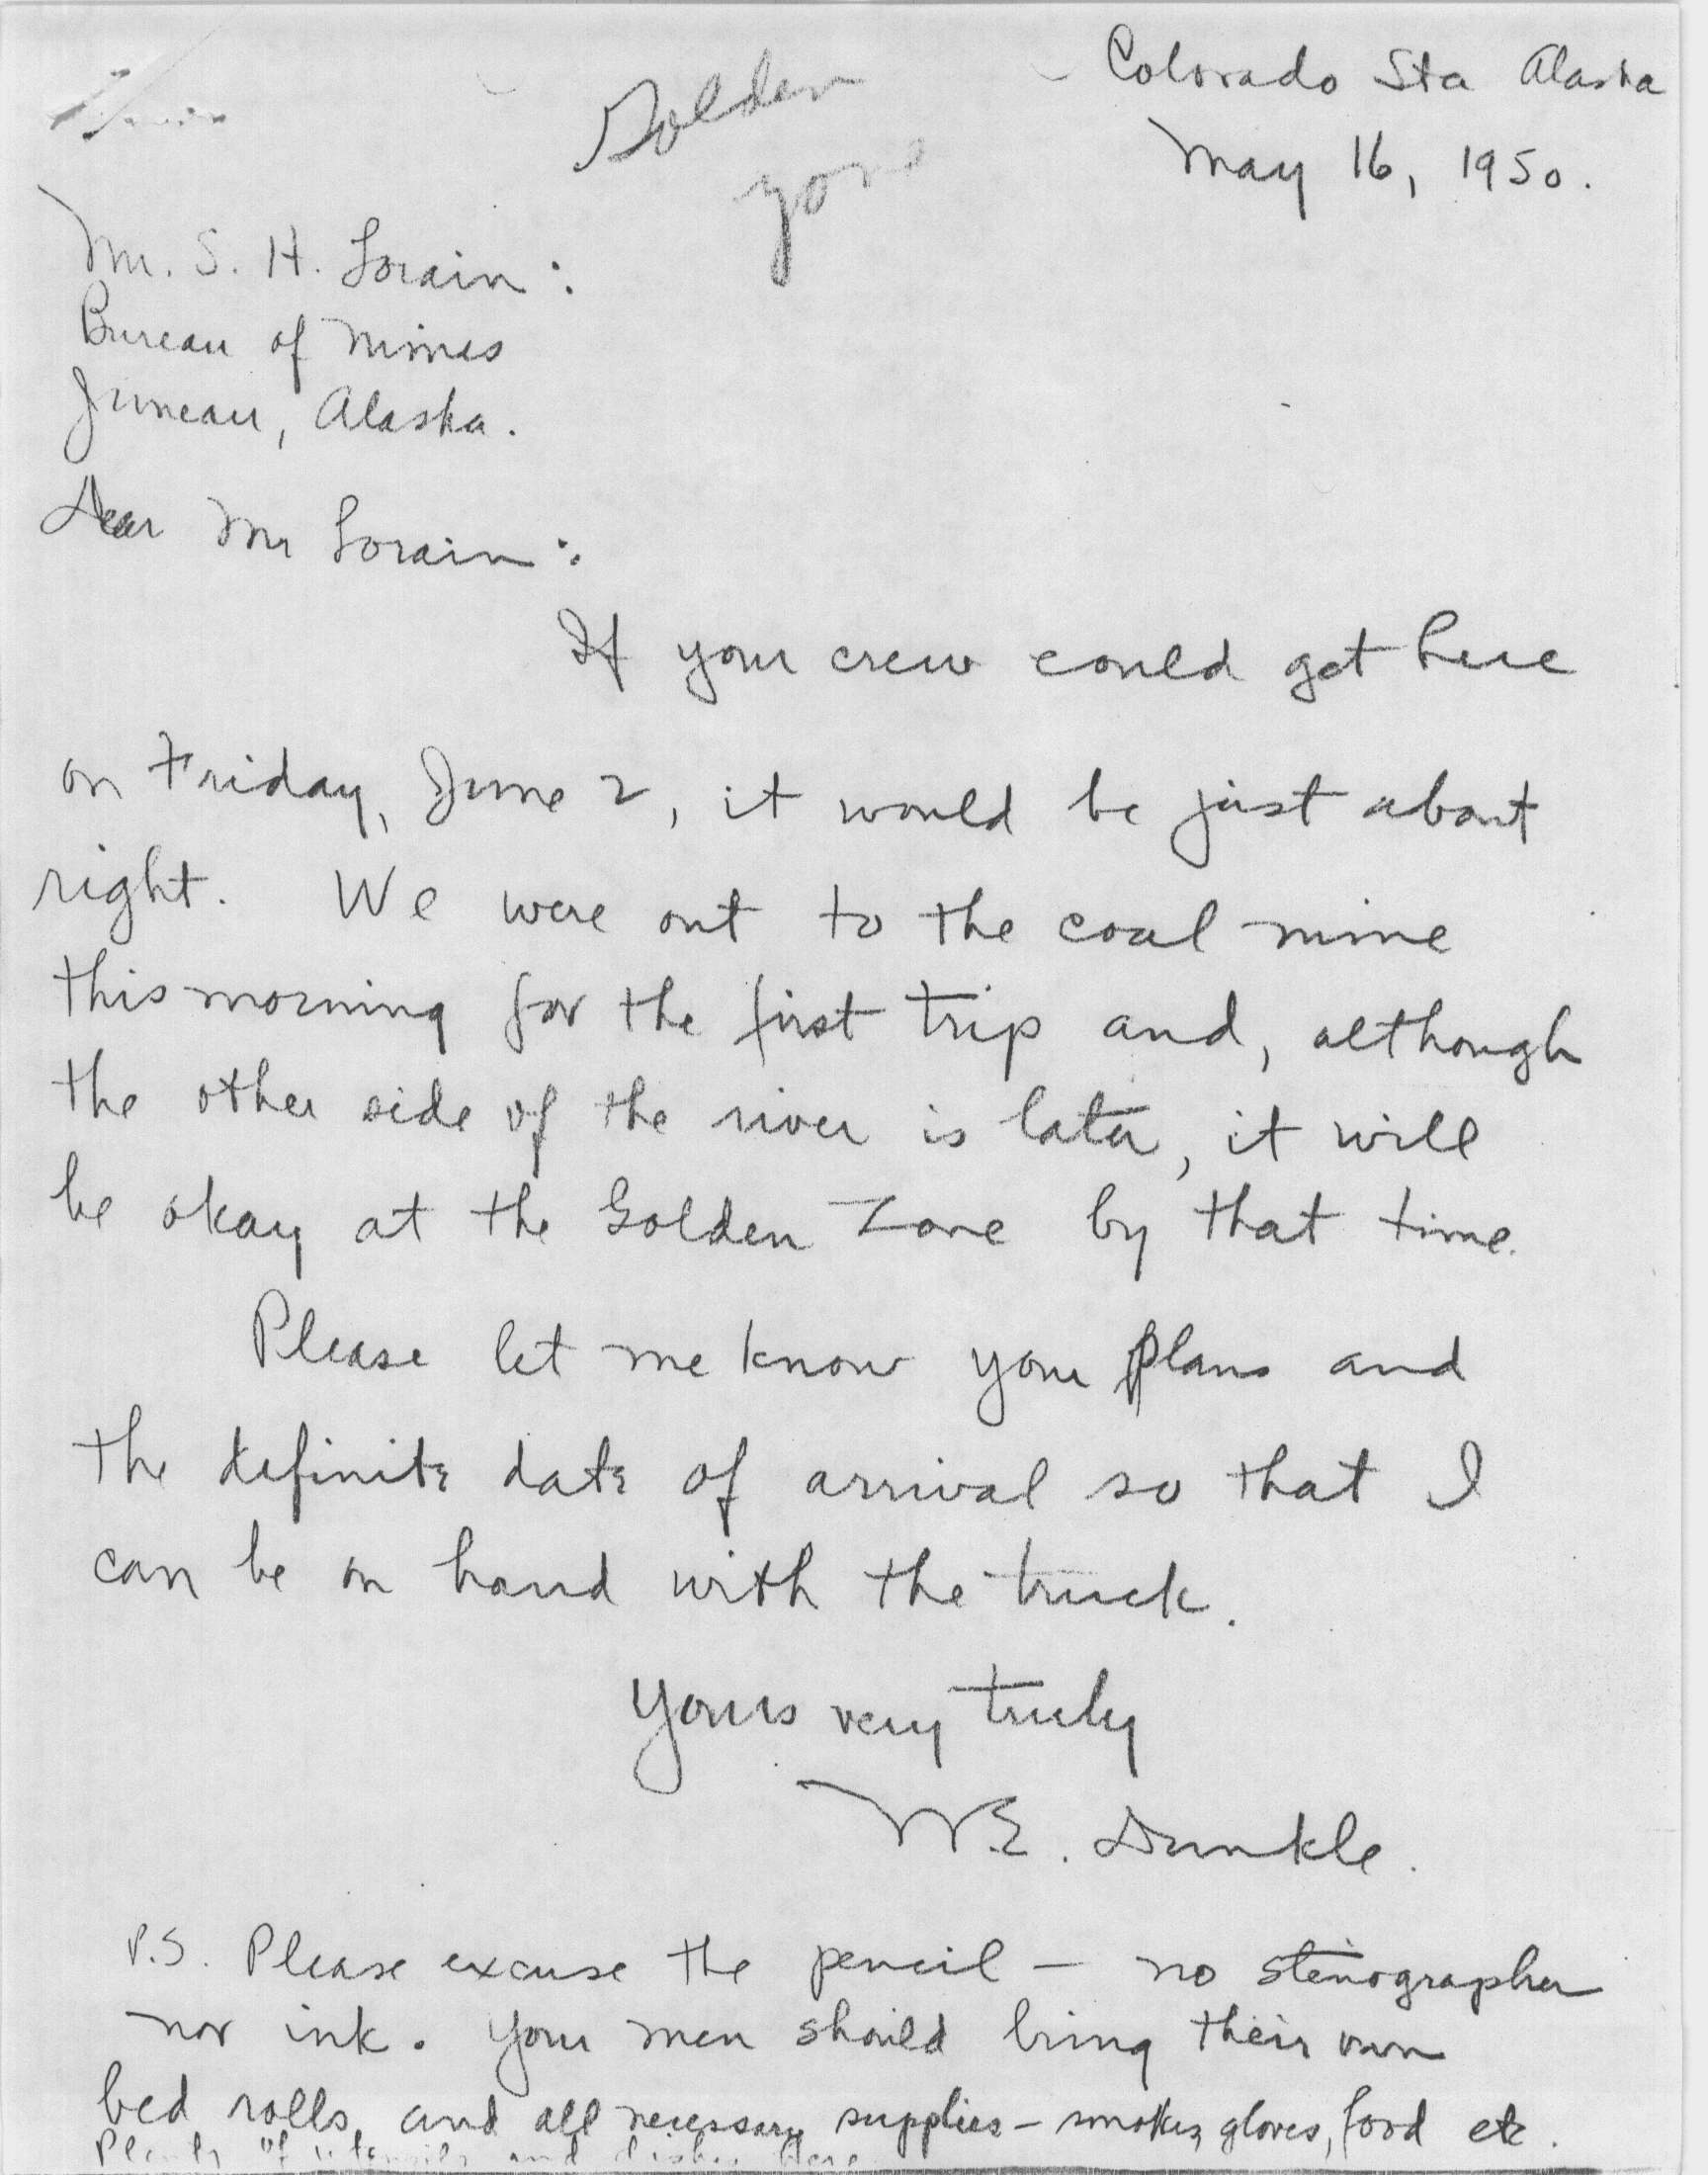 Golden
Zone
Colorado Sta Alaska
May 16, 1950.
Mr. S. H. Lorain:
Bureau of Mines
Juneau, Alaska.
Dear Mr Lorain:
If your crew could get here
on Friday, June 2, it would be just about
right. We were out to the coal mine
this morning for the first trip and, although
the other side of the river is later, it will
be okay at the Golden Zone by that time.
Please let me know your plans and
the definite date of arrival so that I
can be on hand with the truck.
Yours very truly
W.E. Dunkle.
P.S. Please excuse the pencil — no stenographer
nor ink. Your men should bring their own
bed rolls, and all necessary supplies — smokes, gloves, food etc.
Plenty of utensils and dishes here